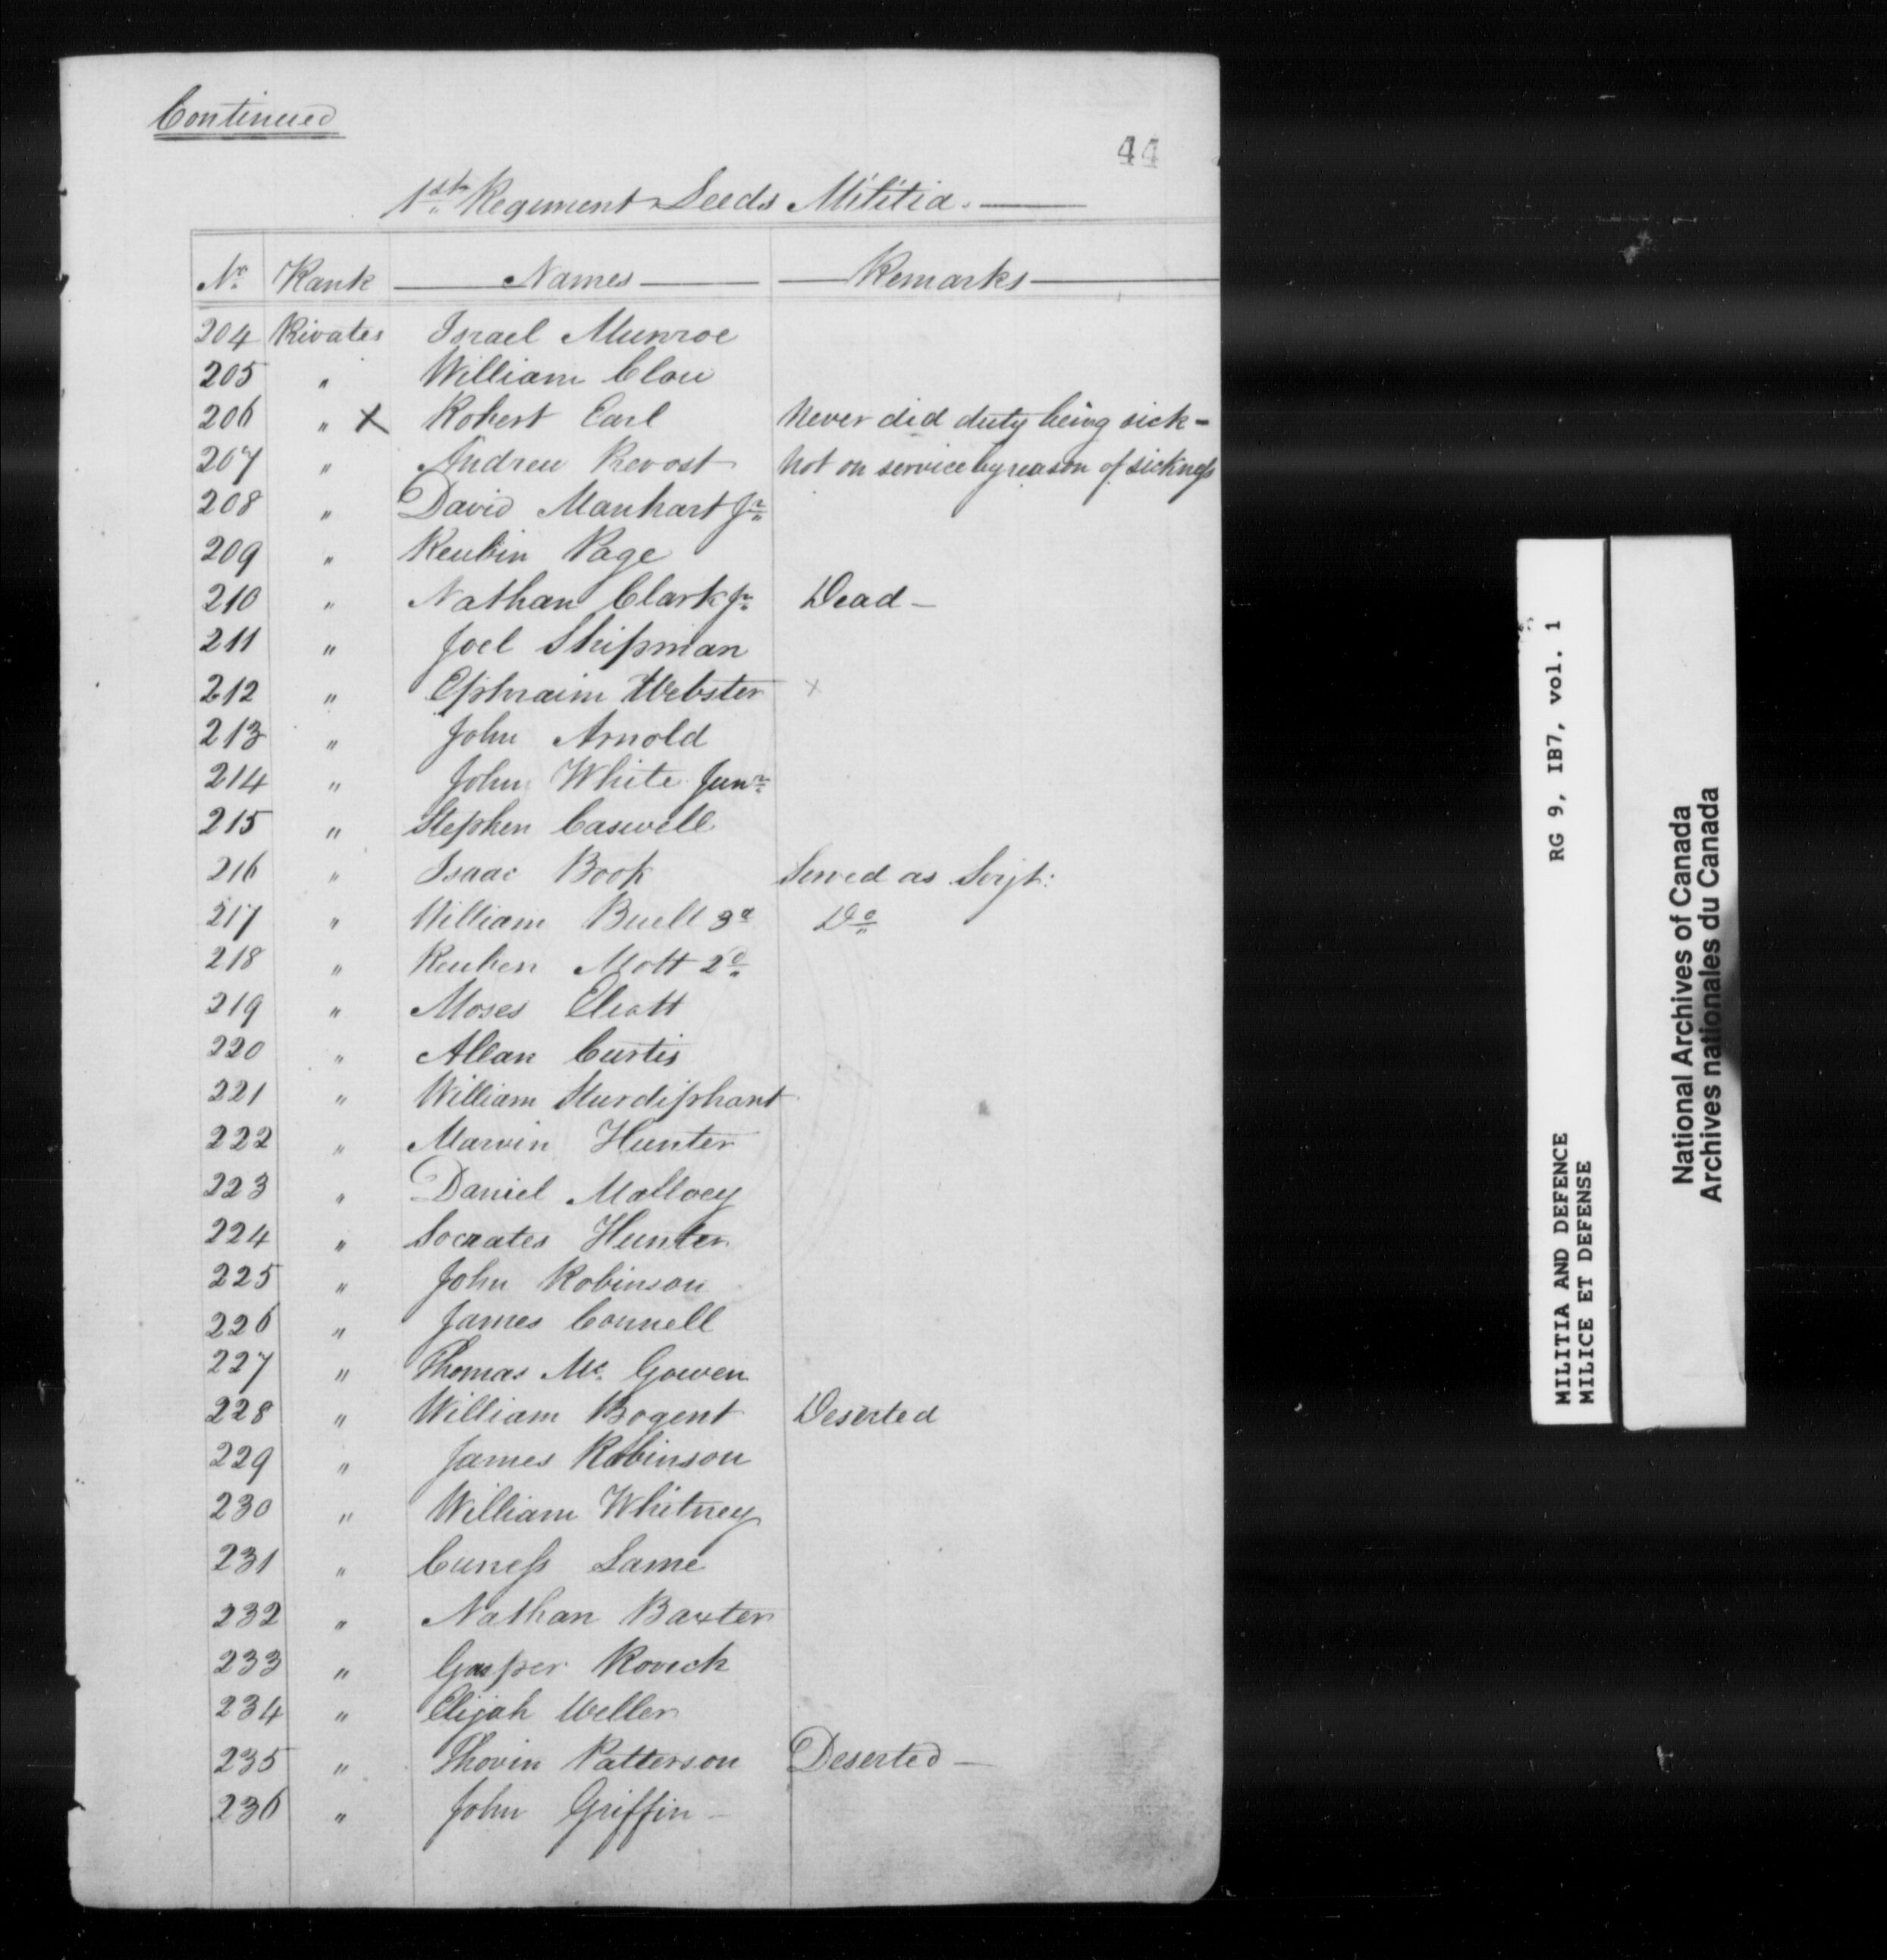 Continued
44
1st Regiment Leeds Militia.
No Rank Names Remarks
204 Privates Israel Munroe
205 " William Clow
206 " X Robert Earl Never did duty being sick -
207 " Andrew Prevost Not on service by reason of sickness
208 " David Manhart Jr
209 " Reubin Page
210 " Nathan Clark Jr Dead -
211 " Joel Shipman
212 " Ephraim Webster x
213 " John Arnold
214 " John White Junr
215 " Stephen Caswell
216 " Isaac Booth Served as Serjt:
217 " William Buell 3d Do
218 " Reuben Mott 2d
219 " Moses Eliott
220 " Allan Curtis
221 " William Sturdiphant
222 " Marvin Hunter
223 " Daniel Mallocy
224 " Socrates Hunter
225 " John Robinson
226 " James Connell
227 " Thomas Mc Gowen
228 " William Bogent Deserted
229 " James Robinson
230 " William Whitney
231 " Cuness Lame
232 " Nathan Baxter
233 " Gasper Roveck
234 " Elijah Weller
235 " Patterson Deserted -
236 " John Griffin -
MILITIA AND DEFENCE RG 9, IB7, vol. 1
MILICE ET DEFENSE
National Archives of Canada
Archives nationales du Canada